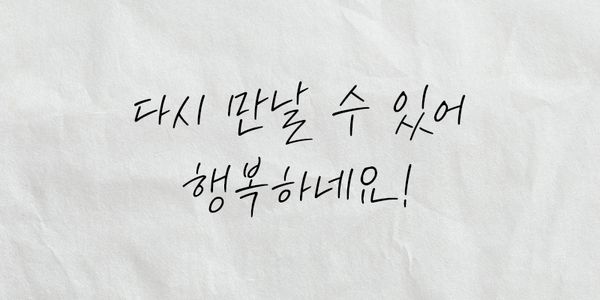 다시 만날 수 있어
행복하네요!